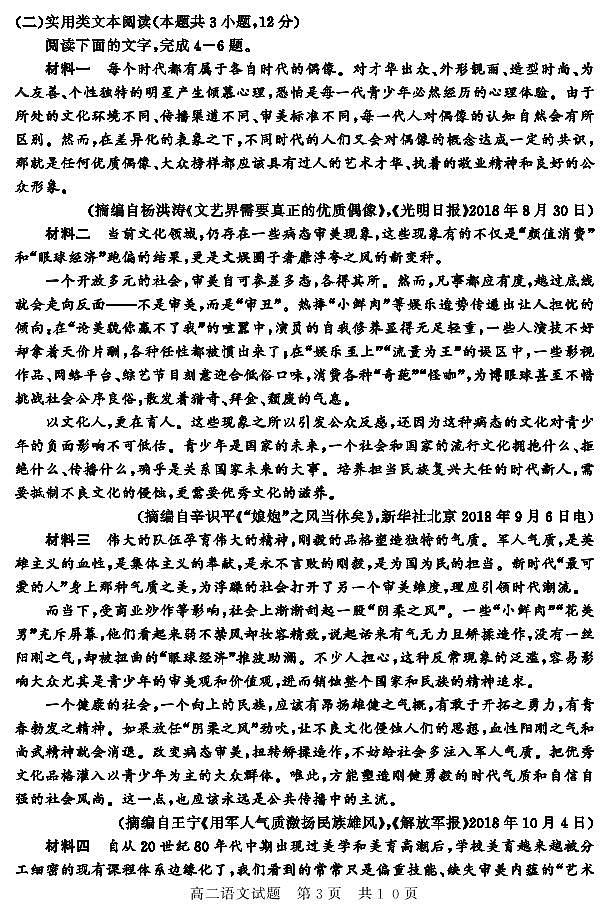 (二)实用类文本阅读(本题共3小题,12分)
阅读下面的文字,完成4-6题。
材料一 每个时代都有属于各自时代的偶像。对才华出众、外形靓丽、造型时尚、为
人友善、个性独特的明星产生倾慕心理,恐怕是每一代青少年必然经历的心理体验。由于
所处的文化环境不同、传播渠道不同、审美标准不同,每一代人对偶像的认知自然会有所
区别。然而,在差异化的表象之下,不同时代的人们又会对偶像的概念达成一定的共识,
那就是任何优质偶像、大众榜样都应该具有过人的艺术才华、执着的敬业精神和良好的公
众形象。
(摘编自杨洪涛《文艺界需要真正的优质偶像》,《光明日报》2018年8月30日)
材料二 当前文化领域,仍存在一些病态审美现象,这些现象有的不仅是“颜值消费”
和“眼球经济”跑偏的结果,更是文娱圈子奢靡浮夸之风的新变种。
一个开放多元的社会,审美自可参差多态,各得其所。然而,凡事都应有度,越过底线
就会走向反面——不是审美,而是“审丑”。热捧“小鲜肉”等娱乐造势传递出让人担忧的
倾向:在“论美貌你赢不了我”的喧嚣中,演员的自我修养显得无足轻重,一些人演技不好
却拿着天价片酬,各种任性都被惯出来了;在“娱乐至上”“流量为王”的误区中,一些影视
作品、网络平台、综艺节目刻意迎合低俗口味,消费各种“奇葩”“怪咖”,为博眼球甚至不惜
挑战社会公序良俗,散发着猎奇、拜金、颓废的气息。
以文化人,更在育人。这些现象之所以引发公众反感,还因为这种病态的文化对青少
年的负面影响不可低估。青少年是国家的未来,一个社会和国家的流行文化拥抱什么、拒
绝什么、传播什么,确乎是关系国家未来的大事。培养担当民族复兴大任的时代新人,需
要抵制不良文化的侵蚀,更需要优秀文化的滋养。
(摘编自辛识平《“娘炮”之风当休矣》,新华社北京2018年9月6日电)
材料三 伟大的队伍孕育伟大的精神,刚毅的品格塑造独特的气质。军人气质,是英
雄主义的血性,是集体主义的奉献,是永不言败的刚毅,是为国为民的担当。新时代“最可
爱的人”身上那种气质之美,为浮躁的社会打开了另一个审美维度,理应引领时代潮流。
而当下,受商业炒作等影响,社会上渐渐刮起一股“阴柔之风”。一些“小鲜肉”“花美
男”充斥屏幕,他们看起来弱不禁风却妆容精致,说起话来有气无力且矫揉造作,没有一丝
阳刚之气,却被扭曲的“眼球经济”推波助澜。不少人担心,这种反常现象的泛滥,容易影
响大众尤其是青少年的审美观和价值观,进而销蚀整个国家和民族的精神追求。
一个健康的社会,一个向上的民族,应该有昂扬雄健之气概,有敢于开拓之勇力,有青
春勃发之精神。如果放任“阴柔之风”劲吹,让不良文化侵蚀人们的思想,血性阳刚之气和
尚武精神就会消退。改变病态审美,扭转矫揉造作,不妨给社会多注入军人气质。把优秀
文化品格灌入以青少年为主的大众群体。唯此,方能塑造刚健勇毅的时代气质和自信自
强的社会风尚。这一点,也应该永远是公共传播中的主流。
(摘编自王宁《用军人气质激扬民族雄风》,《解放军报》2018年10月4日)
材料四 自从20世纪80年代中期出现过美学和美育高潮后,学校美育越来越被分
工细密的现有课程体系边缘化了,我们看到的常常只是偏重技能、缺失审美内蕴的“艺术
高二语文试题 第3页 共10页